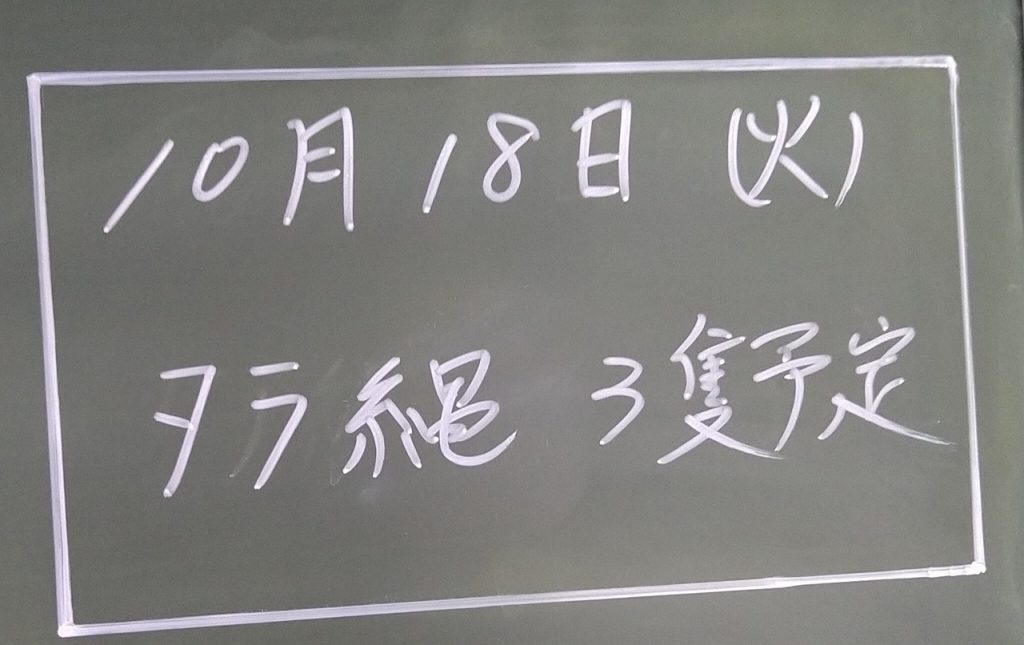 10月18日(火)
タラ縄 3隻予定